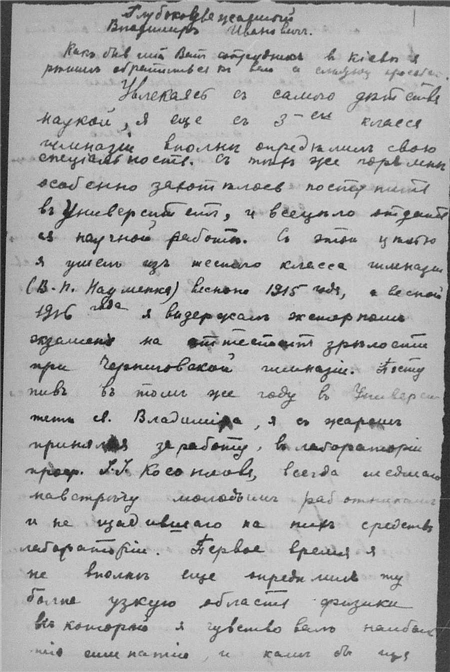 Глубокоуважаемый
Владимиръ Ивановичъ.
Какъ бывший Вашъ сотрудникъ в Кіевѣ я
рѣшилъ обратиться къ Вамъ с слѣдующ просьбой.
Увлекаясь съ самого дѣтства
наукой, я еще съ 3-его класса
гимназіи вполнѣ опредѣлилъ свою
спеціальность. Съ тѣхъ же поръ мнѣ
особенно захотѣлось поступить
въ Университетъ, и всецѣло отдать
ся научной работѣ. Съ этой цѣлью
я ушелъ изъ шестого класса гимназіи
(В. П. Науменко) весною 1915 года, а весной
1916 года я выдержалъ экстерномъ
экзаменъ на аттестатъ зрѣлости
при Черниговской гимназіи. Посту
пивъ въ томъ же году въ Универси
тетъ св. Владиміра, я съ жаромъ
принялся за работу, въ лабораторіи
проф. І. І. Косоногова, всегда шедшаго
навстрѣчу молодымъ работникамъ
и не щадившаго на нихъ средствъ
лабораторіи. Первое время я
не вполнѣ еще опредѣлилъ ту
болѣе узкую область физики
къ которой я чувствовалъ наиболь
шую симпатію, и какъ бы ища